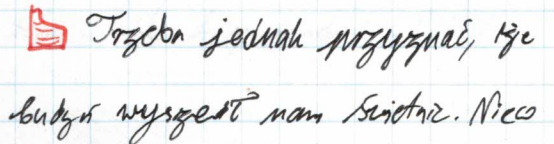 Trzeba jednak przyznać, że
budyń wyszedł nam świetnie. Nieco